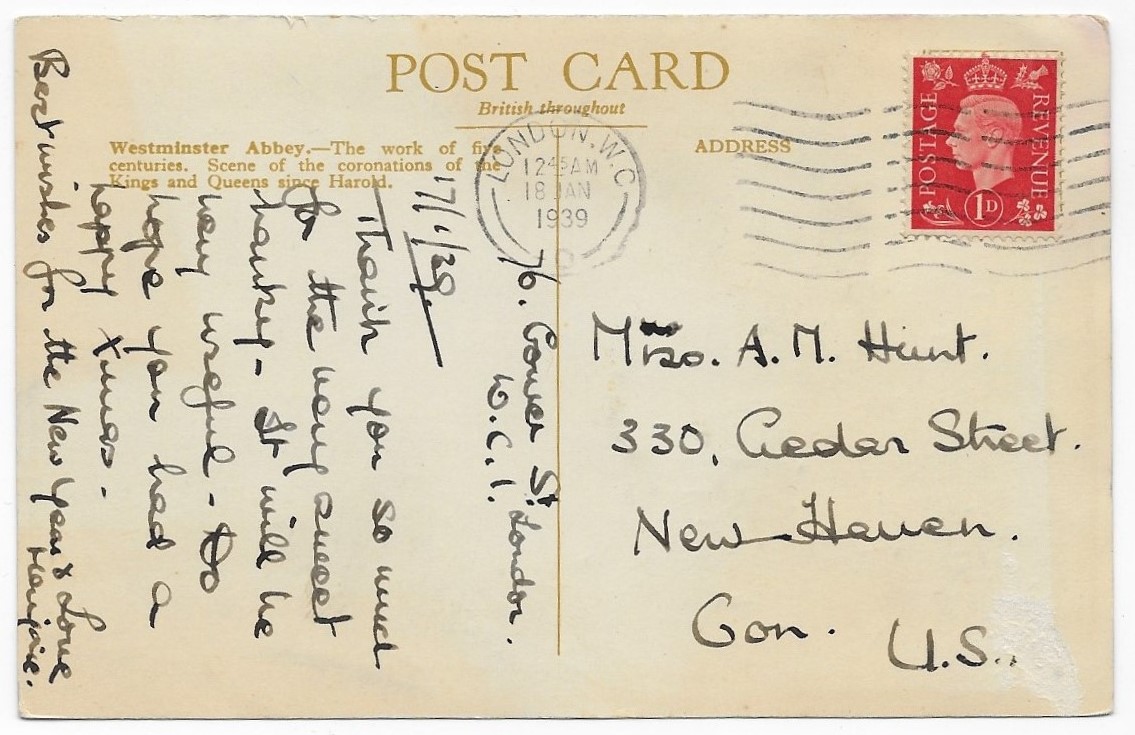 POST CARD
British throughout
Westminster Abbey.—The work of five
centuries. Scene of the coronations of the
Kings and Queens since Harold.
ADDRESS
LONDON. W.C.
12 45 AM
18 JAN
1939
POSTAGE
REVENUE
1D
76. Gower St. London.
W.C.1.
17/1/39
Thank you so much
for the very sweet
hankey - It will be
very useful - Do
hope you had a
happy Xmas -
Best wishes for the New Year & Love
Marjorie.
Mrs. A. M. Hunt.
330, Cedar Street.
New Haven.
Con.
U.S.